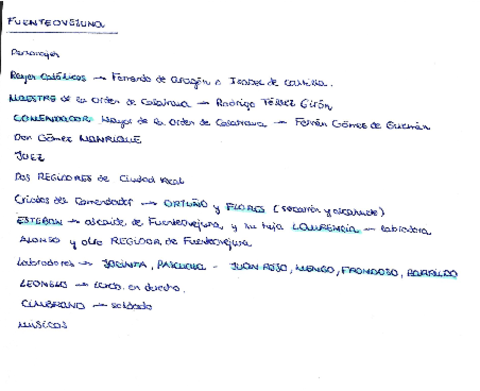 FUENTEOVEJUNA
Personajes
Reyes Católicos → Fernando de Aragón e Isabel de Castilla.
MAESTRE de la Orden de Calatrava → Rodrigo TÉLLEZ Girón
COMENDADOR Mayor de la Orden de Calatrava → Fernán Gómez de Guzmán
Don Gómez MANRIQUE
JUEZ
Dos REGIDORES de Ciudad Real
Criados del Comendador → ORTUÑO y FLORES (socarrón y alcahuete)
ESTEBAN → alcalde de Fuenteovejuna, y su hija LAURENCIA → labradora
ALONSO y otro REGIDOR de Fuenteovejuna
Labradores → JACINTA, PASCUALA - JUAN ROJO, MENGO, FRONDOSO, BARRILDO
LEONELO → en derecho.
CIMBRANO → soldado
MÚSICOS